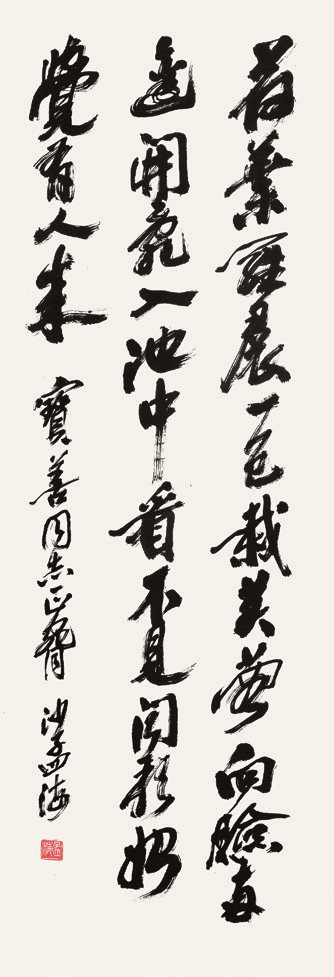 荷葉羅裙一色裁芙蓉向臉兩
邊開亂入池中看不見聞歌始
覺有人來
寶善同志正 沙孟海